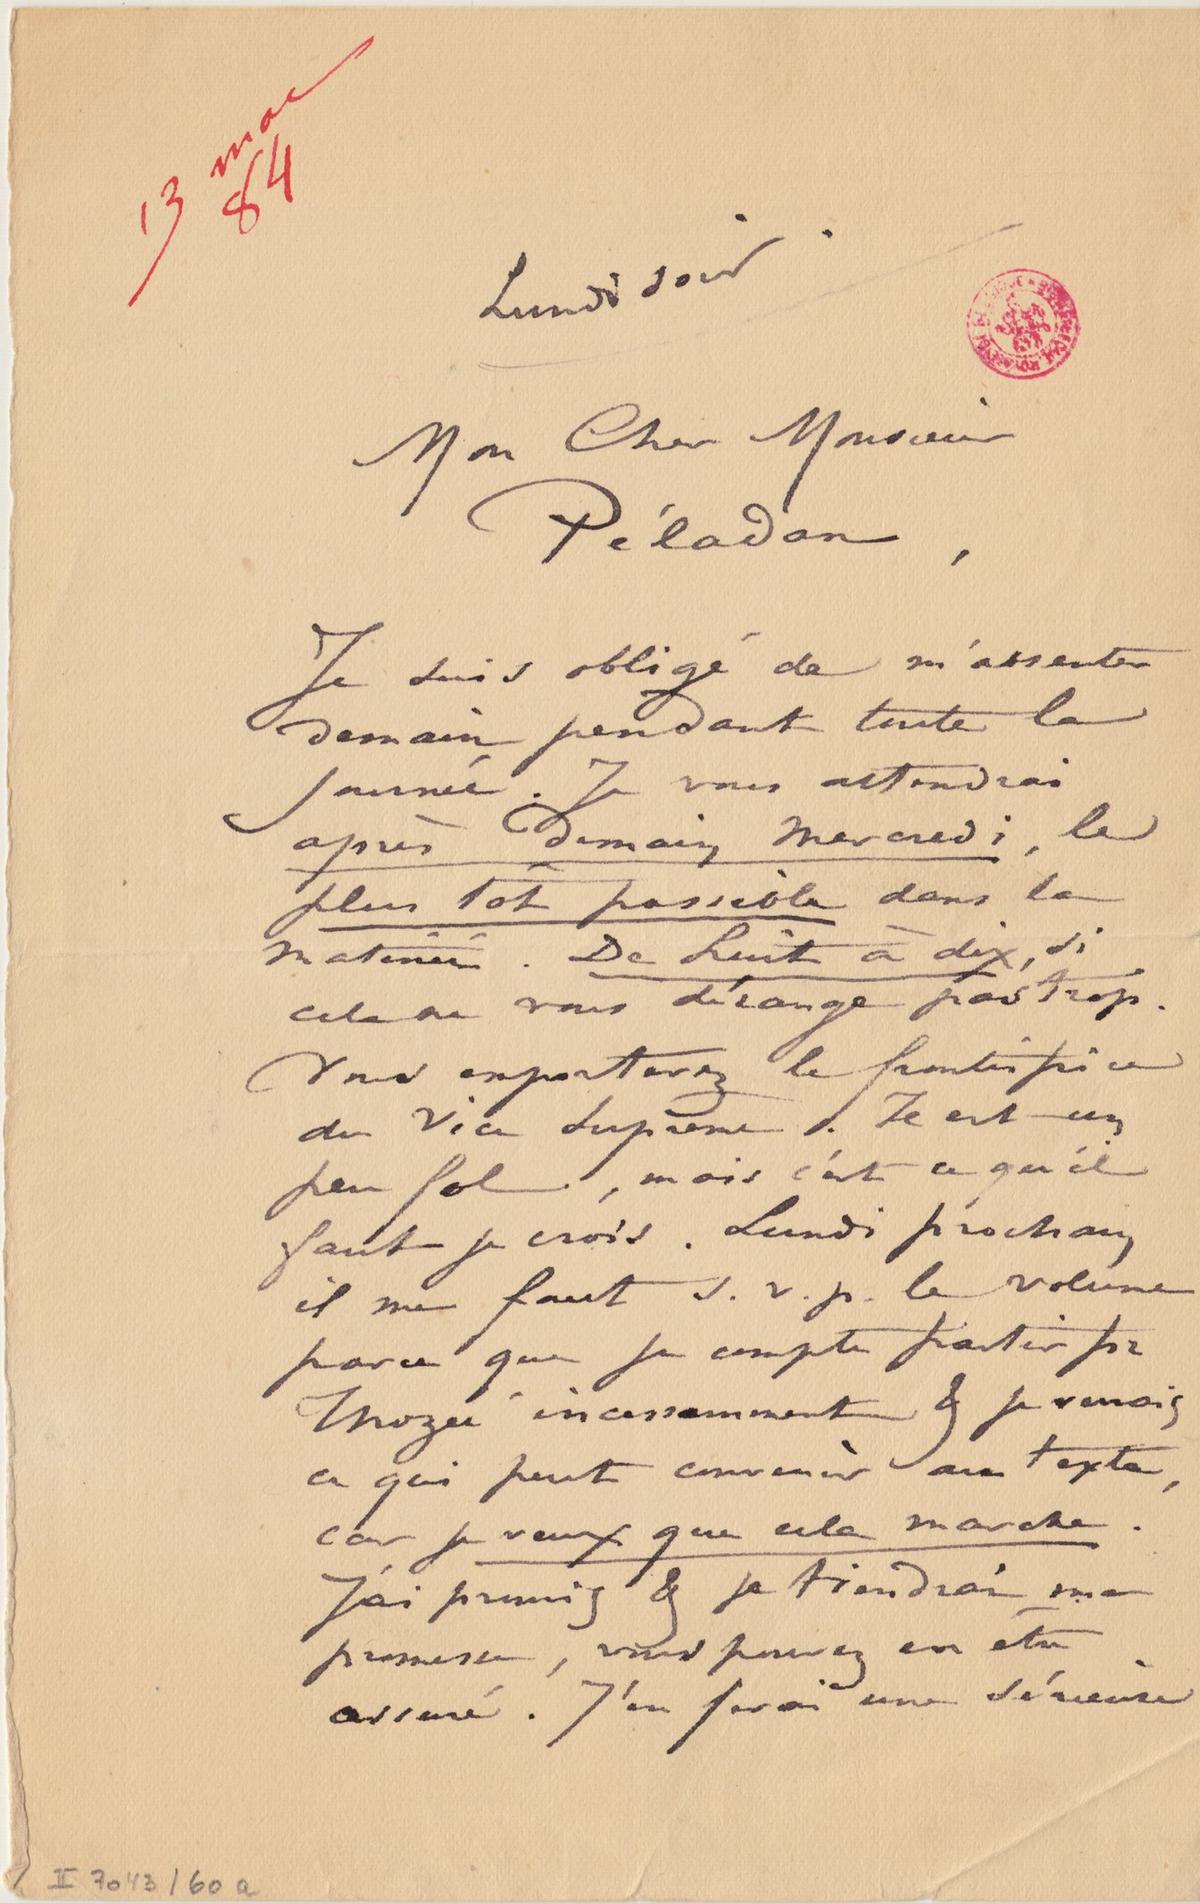 13 mai
84
Lundi soir.
Mon Cher Monsieur
Péladan,
Je suis obligé de m'absenter
demain pendant toute la
journée. Je vous attendrai
après demain mercredi, le
plus tôt possible dans la
matinée. De huit à dix, si
cela ne vous dérange pas trop.
Vous emporterez le frontispice
du Vice Suprême. Il est un
peu fol, mais c'est ce qu'il
faut je crois. Lundi prochain
il me faut s. v. p. le volume
parce que je compte partir pr
Thozée incessamment & je verrais
ce qui peut convenir au texte,
car je veux que cela marche.
J'ai promis & je tiendrai ma
promesse, vous pouvez en être
assuré. J'en ferai une sérieuse
II 7043/60 a